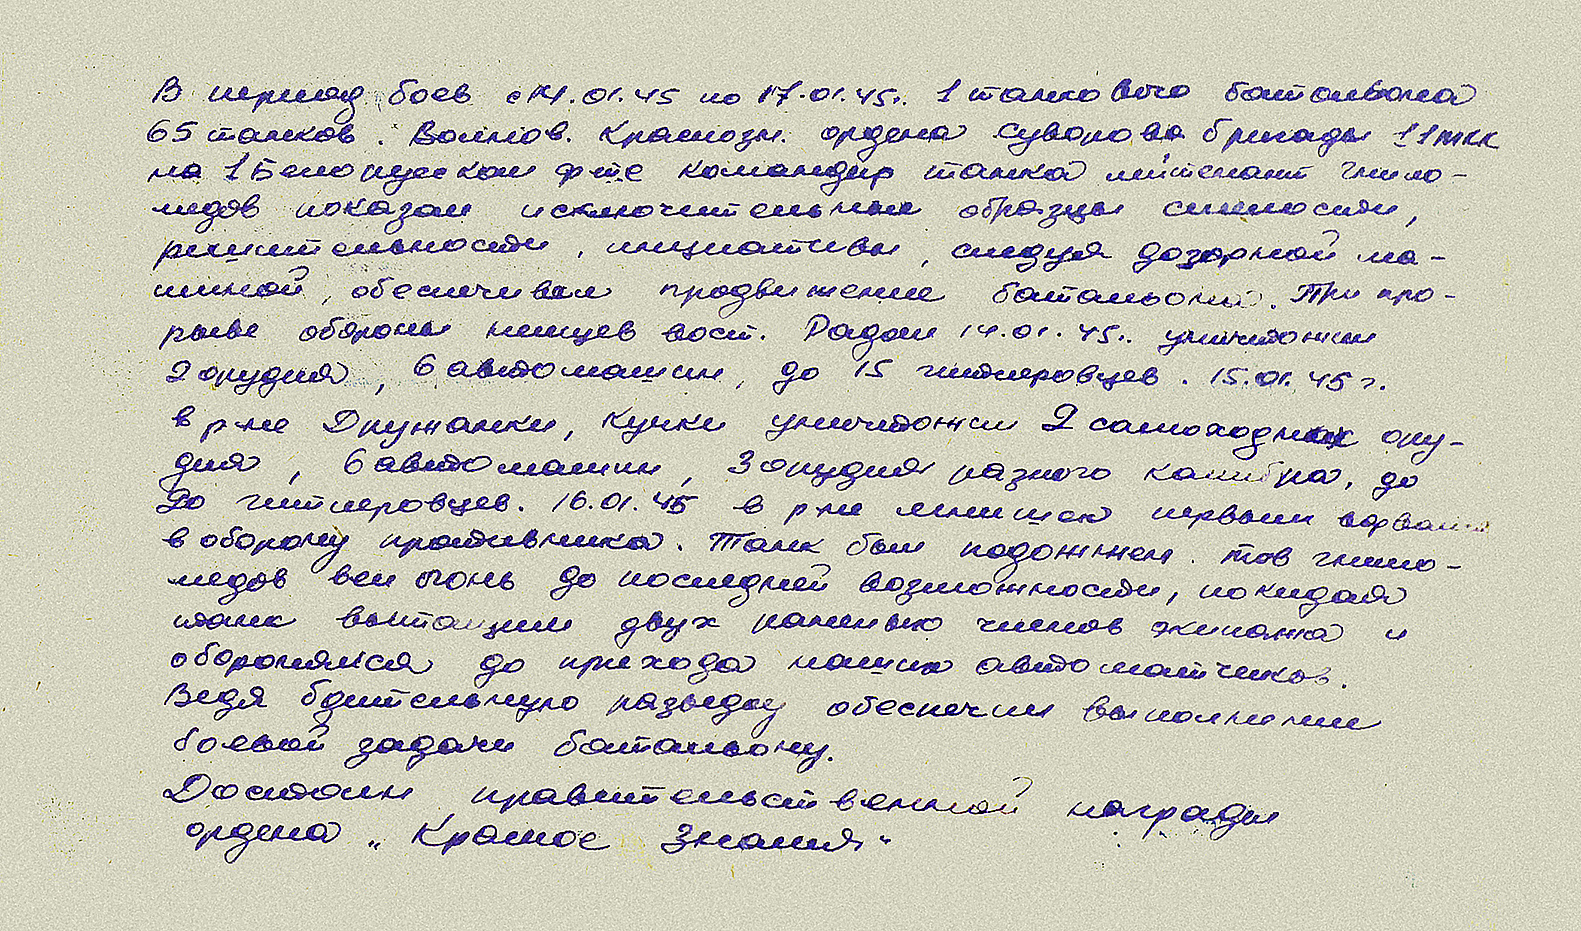 В период боев с 14.01.45 по 17.01.45г. 1 танкового батальона
65 танков. Волнов. Краснозн. ордена Суворова бригады 11 ткк
на 1 Белорусском фте командир танка лейтенант Гнило-
медов показал исключительные образцы смелости,
решительности, инициативы, следуя дозорной ма-
шиной, обеспечивал продвижение батальона. При про-
рыве обороны немцев вост. Радом 14.01.45г. уничтожил
2 орудия, 6 автомашин, до 15 гитлеровцев. 15.01.45 г.
в р-не Дружанки, Кучки уничтожил 2 самоходных ору-
дия, 6 автомашин, 3 орудия разного калибра, до
20 гитлеровцев. 16.01.45 в р-не первым ворвался
в оборону противника. Танк был подожжен. тов Гнило-
медов вел огонь до последней возможности, покидая
танк вытащил двух раненых членов экипажа и
оборонялся до прихода наших автоматчиков.
Ведя бдительную разведку обеспечил выполнение
боевой задачи батальону.
Достоин правительственной награды
ордена „Красное Знамя"